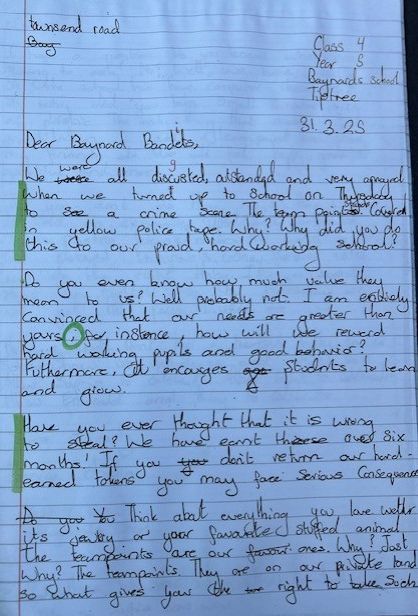 townsend road
Bay
Class 4
Year 5
Baynards school
Tiptree
31.3.25
Dear Baynard Bandits,
We were all discusted, outstanded and very annoyed
when we turned up to school on Thursday
to see a crime scene. The team points Covered
in yellow police tape. Why? Why did you do
this to our proud, hard working school?
Do you even know how much value they
mean to us? Well probably not. I am entirely
Convinced that our needs are greater than
yours, for instence, how will we reward
hard working pupils and good behavior?
Futhermore, it encourges students to learn
and grow.
Have you ever thought that it is wrong
to steal? We have earnt these over six
months! If you you don't return our hard-
earned tokens you may face serious Consequence
Do you You Think about everything you love
its jewlry or your favourite stuffed animal
the teampoints are our favour ones. Why? Just
Why? The teampoints. They are on our private land
so what gives you the right to take such